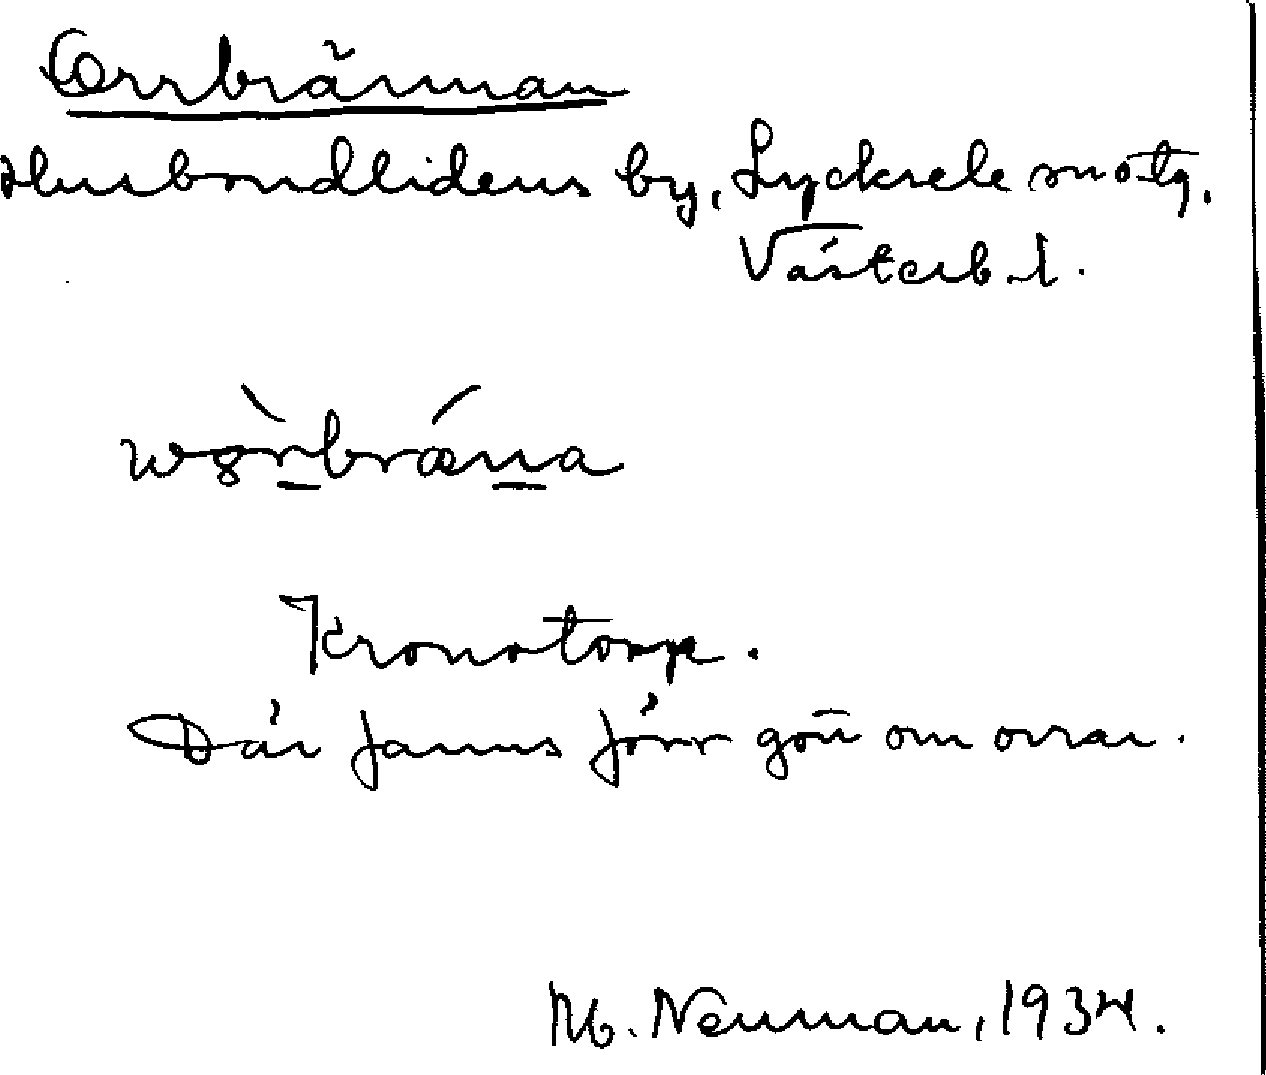 Orrbrännan
Husbondlidens by, Lycksele snötg.
Västerb. l.
Kronotorp.
Där fanns förr gott om orrar.
M. Neuman, 1934.